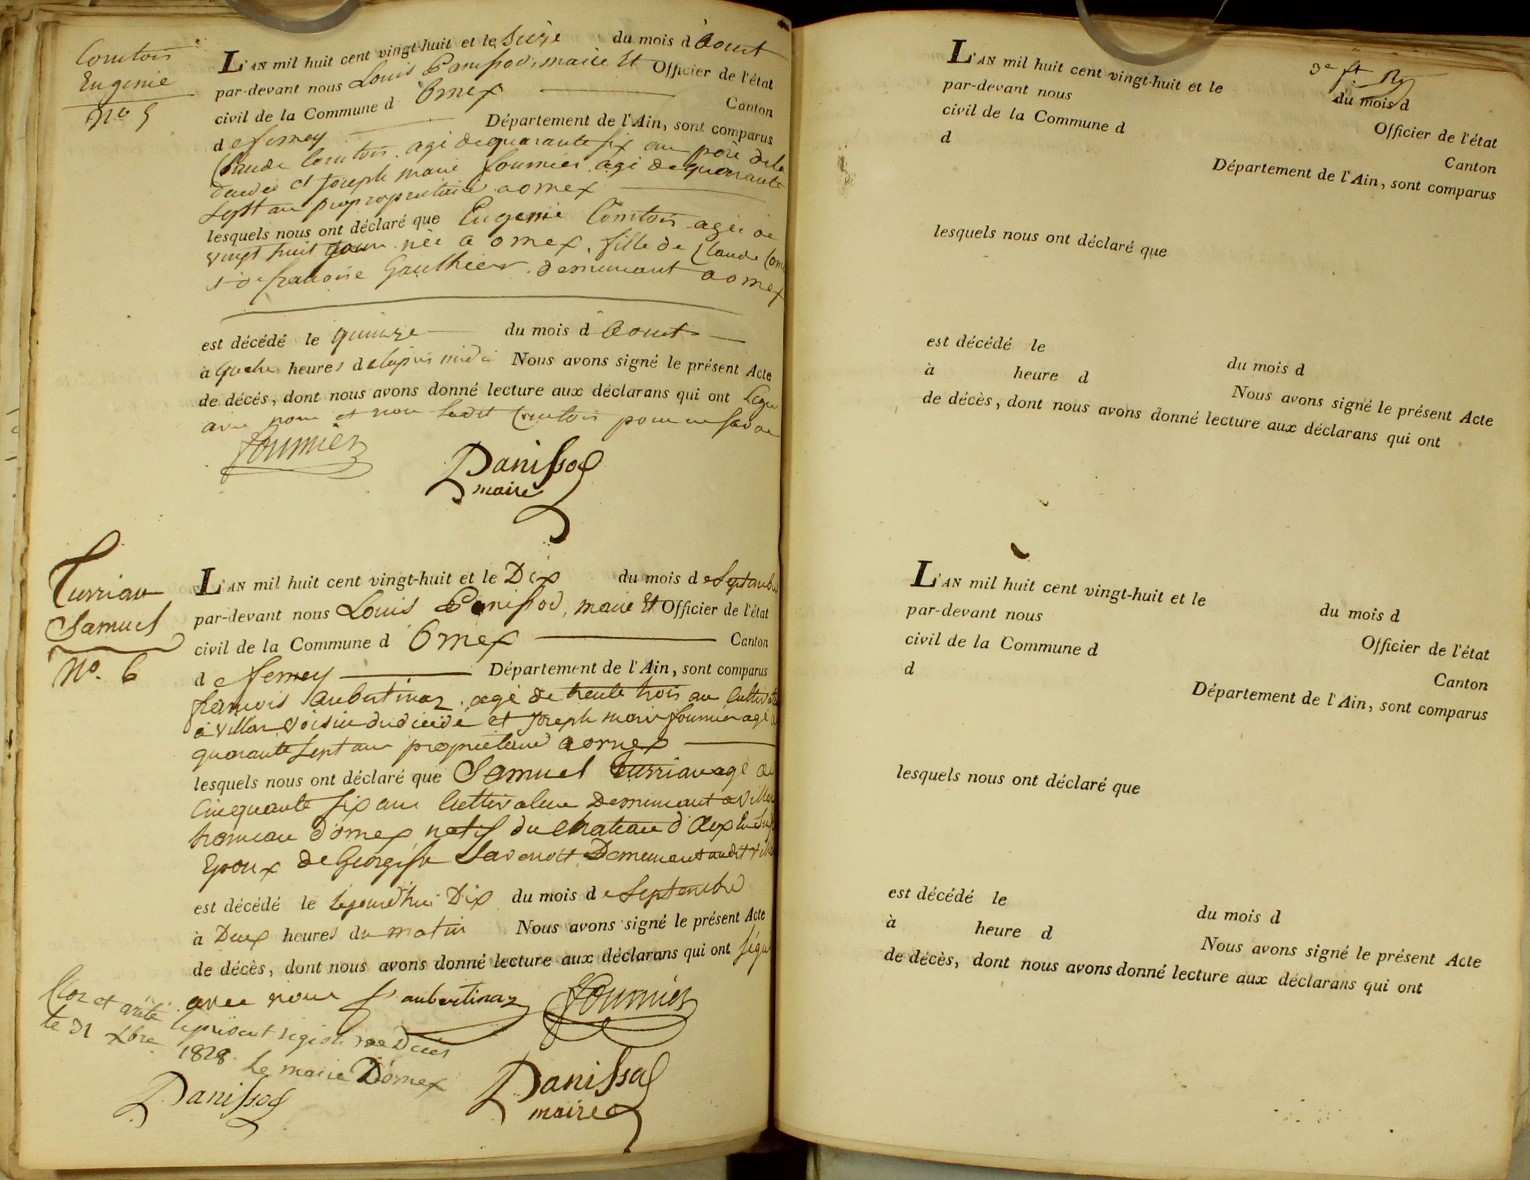 Comtois
Eugenie
No 5
L'AN mil huit cent vingt-huit et le Seize du mois d'Aout
par-devant nous Louis Panissod, maire Et Officier de l'état
civil de la Commune d'Ornex Canton
de ferney Département de l'Ain, sont comparus
Claude Comtois agé de quarante six ans père de la
décédée et Joseph marie fournier agé de quarante
Sept ans propropriétaire a ornex
lesquels nous ont déclaré que Eugenie Comtois agée de
vingt huit jours née a ornex, fille de Claude
françoise Gauthier demeurant a ornex
est décédé le quinze du mois d'Aout
à heures de laprès midi Nous avons signé le présent Acte
de décès, dont nous avons donné lecture aux déclarans qui ont
avec nous et non Ledit Comtois pour ne savoir
fournier
Panissod
maire
Turrian
Samuel
No. 6
L'AN mil huit cent vingt-huit et le Dix du mois de Septembre
par-devant nous Louis Panissod, maire Et Officier de l'état
civil de la Commune d'Ornex Canton
de ferney Département de l'Ain, sont comparus
françois Jaubertinaz, agé de trente trois ans
a villar voisin du décédé et Joseph marie fournier agé
quarante Sept ans propriétaire a ornex
lesquels nous ont déclaré que Samuel Turrian agé de
Cinquante six ans Cultivateur Demeurant a
hameau d'ornex natif du Chateau d'Oex En
Epoux de Demeurant audit
est décédé le cejourd'hui Dix du mois de Septembre
à Deux heures du matin Nous avons signé le présent Acte
de décès, dont nous avons donné lecture aux déclarans qui ont signé
avec nous f Jaubertinaz fournier
Clos et arété le présent registre de Décès
le 31 Xbre 1828. Le maire D'ornex
Panissod
Panissod
maire
L'AN mil huit cent vingt-huit et le du mois d
par-devant nous Officier de l'état
civil de la Commune d Canton
d Département de l'Ain, sont comparus
lesquels nous ont déclaré que
est décédé le du mois d
à heure d Nous avons signé le présent Acte
de décès, dont nous avons donné lecture aux déclarans qui ont
L'AN mil huit cent vingt-huit et le du mois d
par-devant nous Officier de l'état
civil de la Commune d Canton
d Département de l'Ain, sont comparus
lesquels nous ont déclaré que
est décédé le du mois d
à heure d Nous avons signé le présent Acte
de décès, dont nous avons donné lecture aux déclarans qui ont